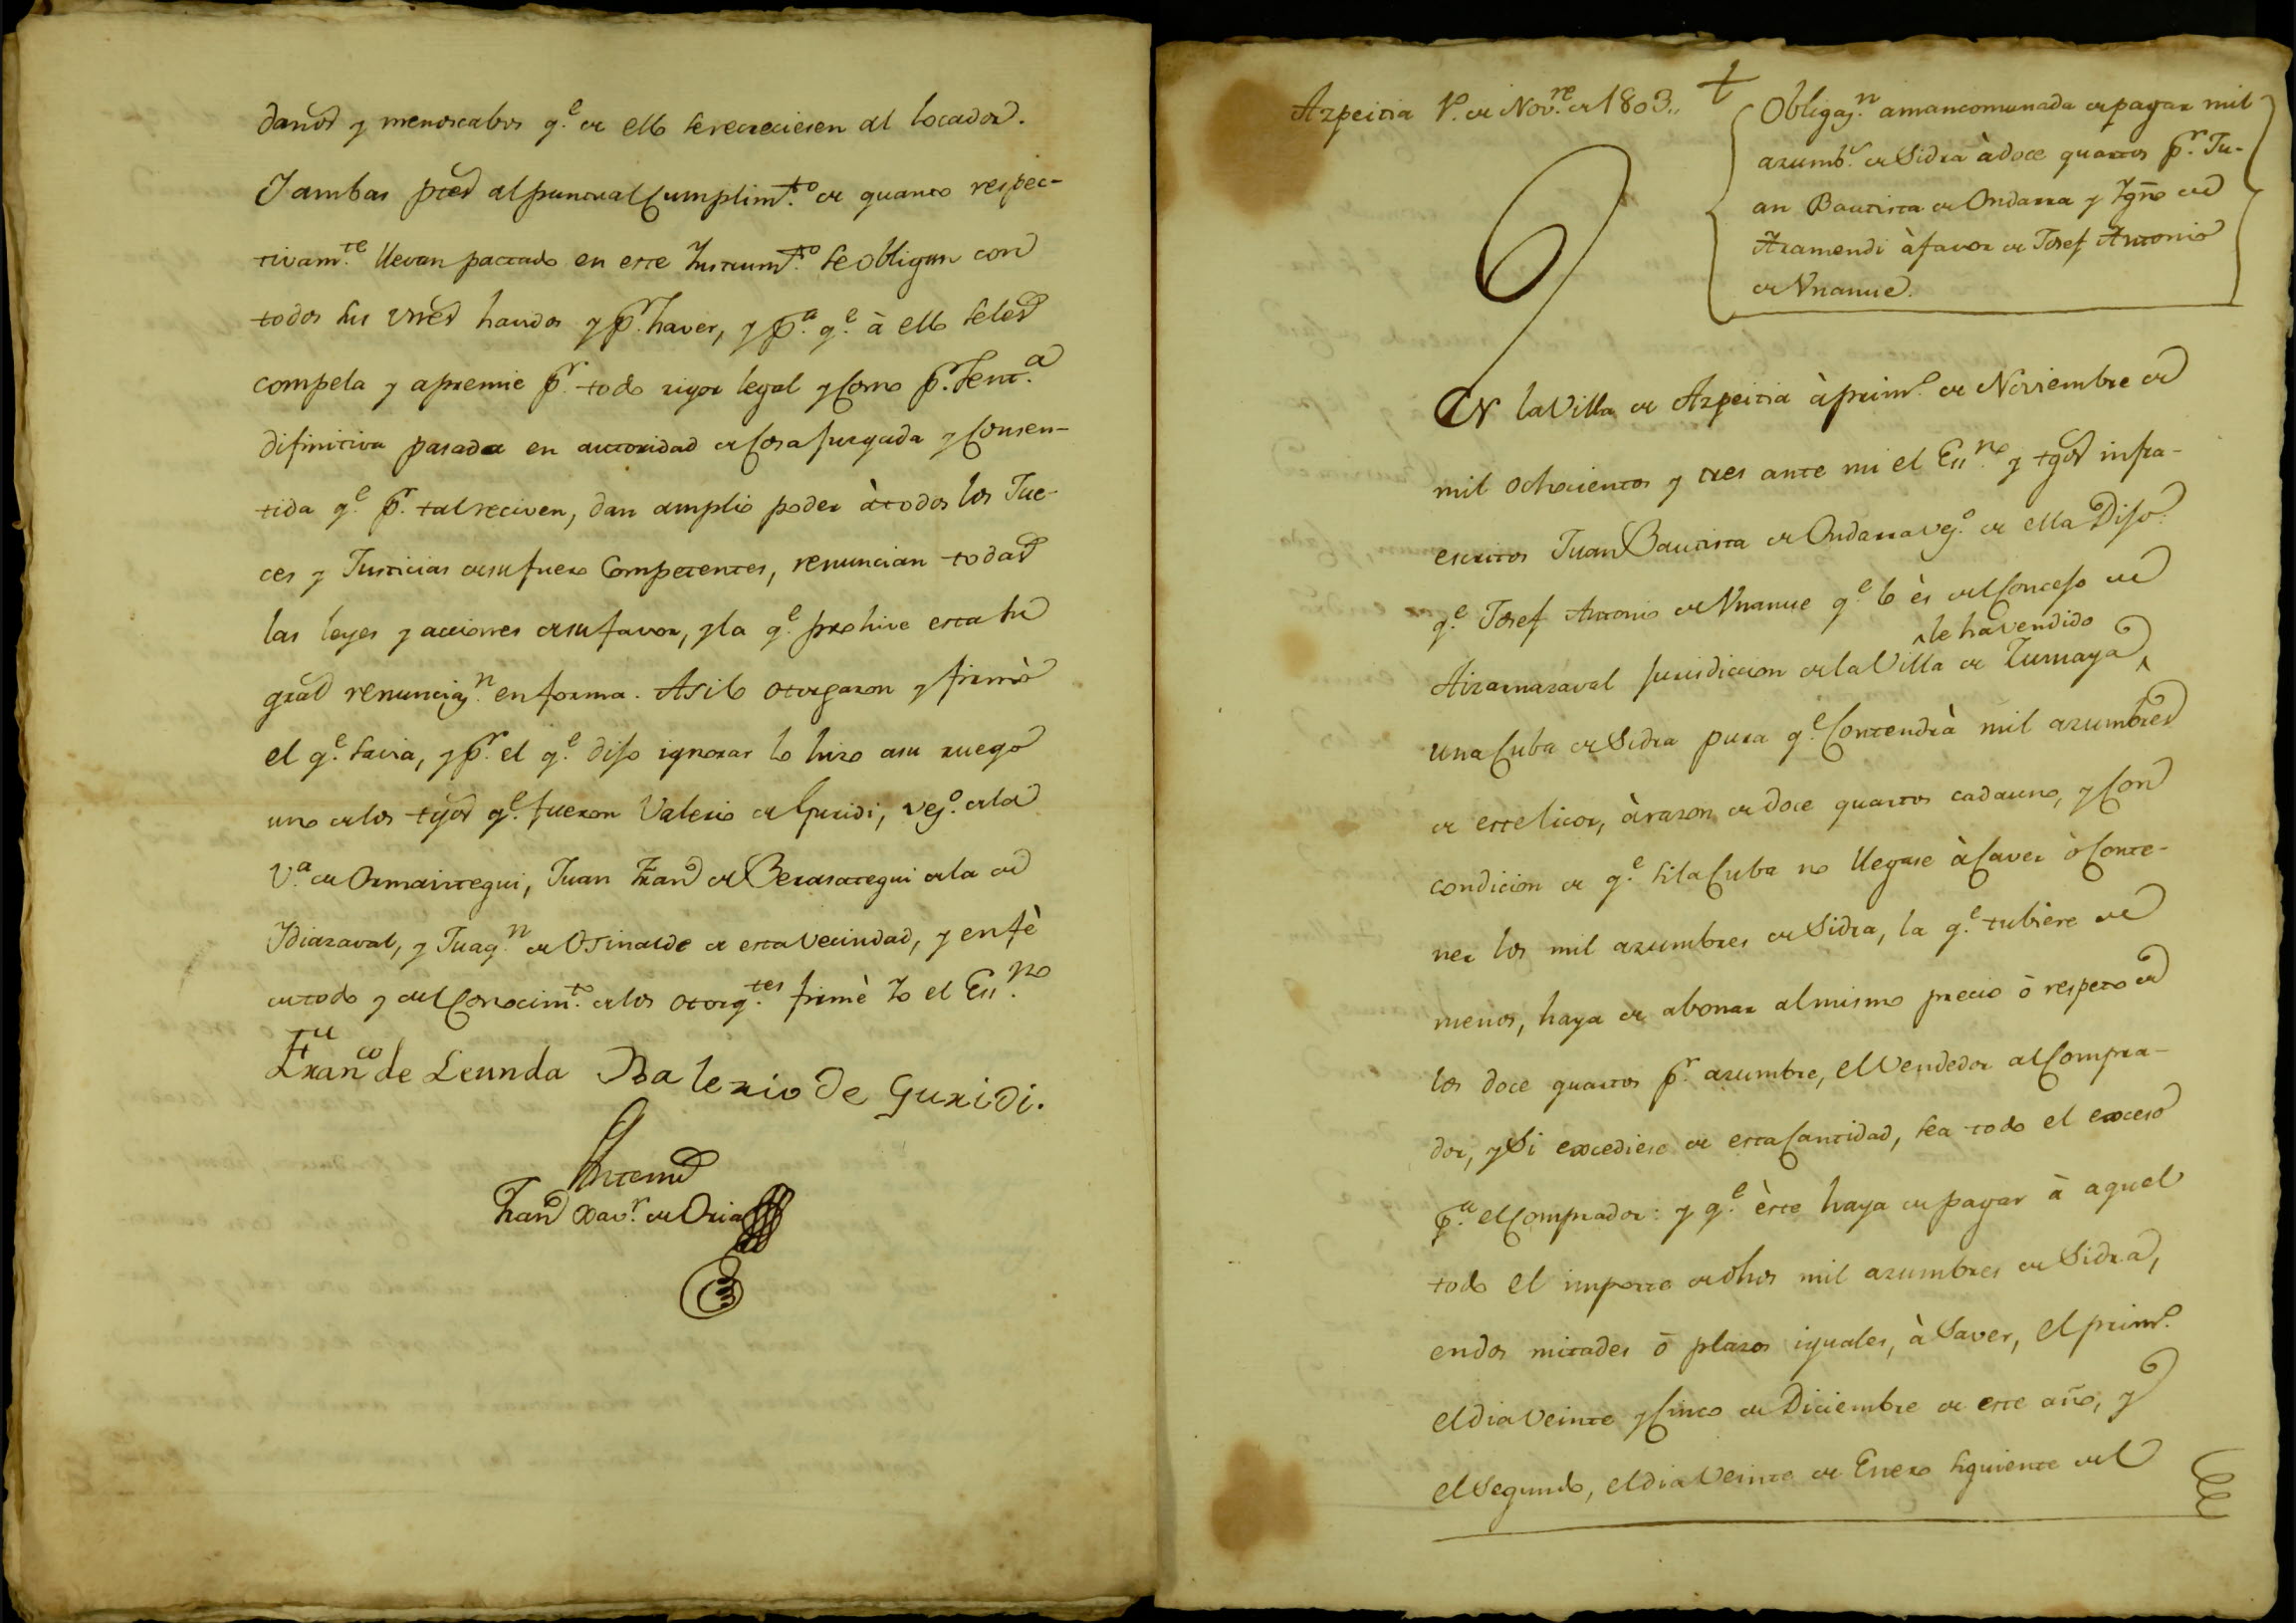 daños y menoscabos q.e de ello se recreciesen al locador.
Y ambas ptes al puntual Cumplim.to de quanto respec-
tivam.te llevan pactado en este Instrum.to se obligan con
todos sus vnes havidos y p.r haver, y p.a q.e à ello se les
compela y apremie p.r todo rigor legal y como p.r Sent.a
difinitiva pasada en autoridad de Cosa Juzgada y Consen-
tida q.e p.r tal reciven, dan amplio poder à todos los Jue-
ces y Justicias de su fuero Competentes, renuncian todas
las leyes y acciones de su favor, y la q.e prohive esta su
gral renunciaz.n en forma. Asi lo otorgaron y firmò
el q.e savia, y p.r el q.e dijo ignorar lo hizo a su ruego
uno de los tgos q.e fueron Valerio de Guridi, vez.o de la
V.a de Ormaiztegui, Juan Fran.co de Berasategui de la de
Idiazaval, y Juaq.n de Osinalde de esta Vecindad, y en fè
de todo y del Conocim.to de los otorg.tes firmè Yo el Ess.no
Fran.co de Leunda Balerio de Guridi.
Ante mi
Fran.co Xav.r de Oria
Azpeitia 1.o de Nov.re de 1803.,
Obligaz.n amancomunada de pagar mil
azumb.s de Sidra à doce quartos p.r Ju-
an Bautista de Ondarra y Ygn.o de
Aramendi à favor de Josef Antonio
de Vnanue.
EN la Villa de Azpeitia à prim.o de Noviembre de
mil ochocientos y tres ante mi el Ess.no y tgos infra-
escritos Juan Bautista de Ondarra vez.o de ella Dijo:
q.e Josef Antonio de Vnanue q.e lo ès del Concejo de
le ha vendido
Aizarnazaval Jurisdiccion de la Villa de Zumaya
una Cuba de Sidra pura q.e Contendrà mil azumbres
de este licor, à razon de doce quartos cada uno, y Con
condicion de q.e si la Cuba no llegase à Caver ò Conte-
ner los mil azumbres de Sidra, la q.e tubiere de
menos, haya de abonar al mismo precio ò respeto de
los doce quartos p.r azumbre, el Vendedor al Compra-
dor, y Si excediese de esta Cantidad, sea todo el exceso
p.a el Comprador: y q.e èste haya de pagar à aquel
todo el importe de dhos mil azumbres de Sidra,
en dos mitades ò plazos iguales, à Saver, el prim.o
el dia Veinte y Cinco de Diciembre de este año, y
el Segundo, el dia Veinte de Enero siguiente del